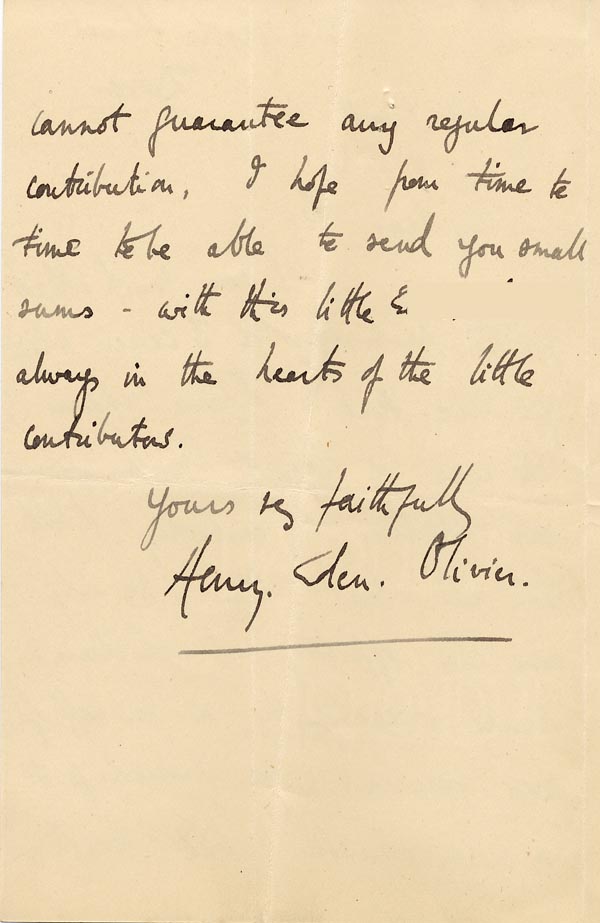 cannot guarantee any regular
contribution, I hope from time to
time to be able to send you small
sums - with this little &
always in the hearts of the little
contributors.
Yours very faithfully
Henry. Eden. Olivier.